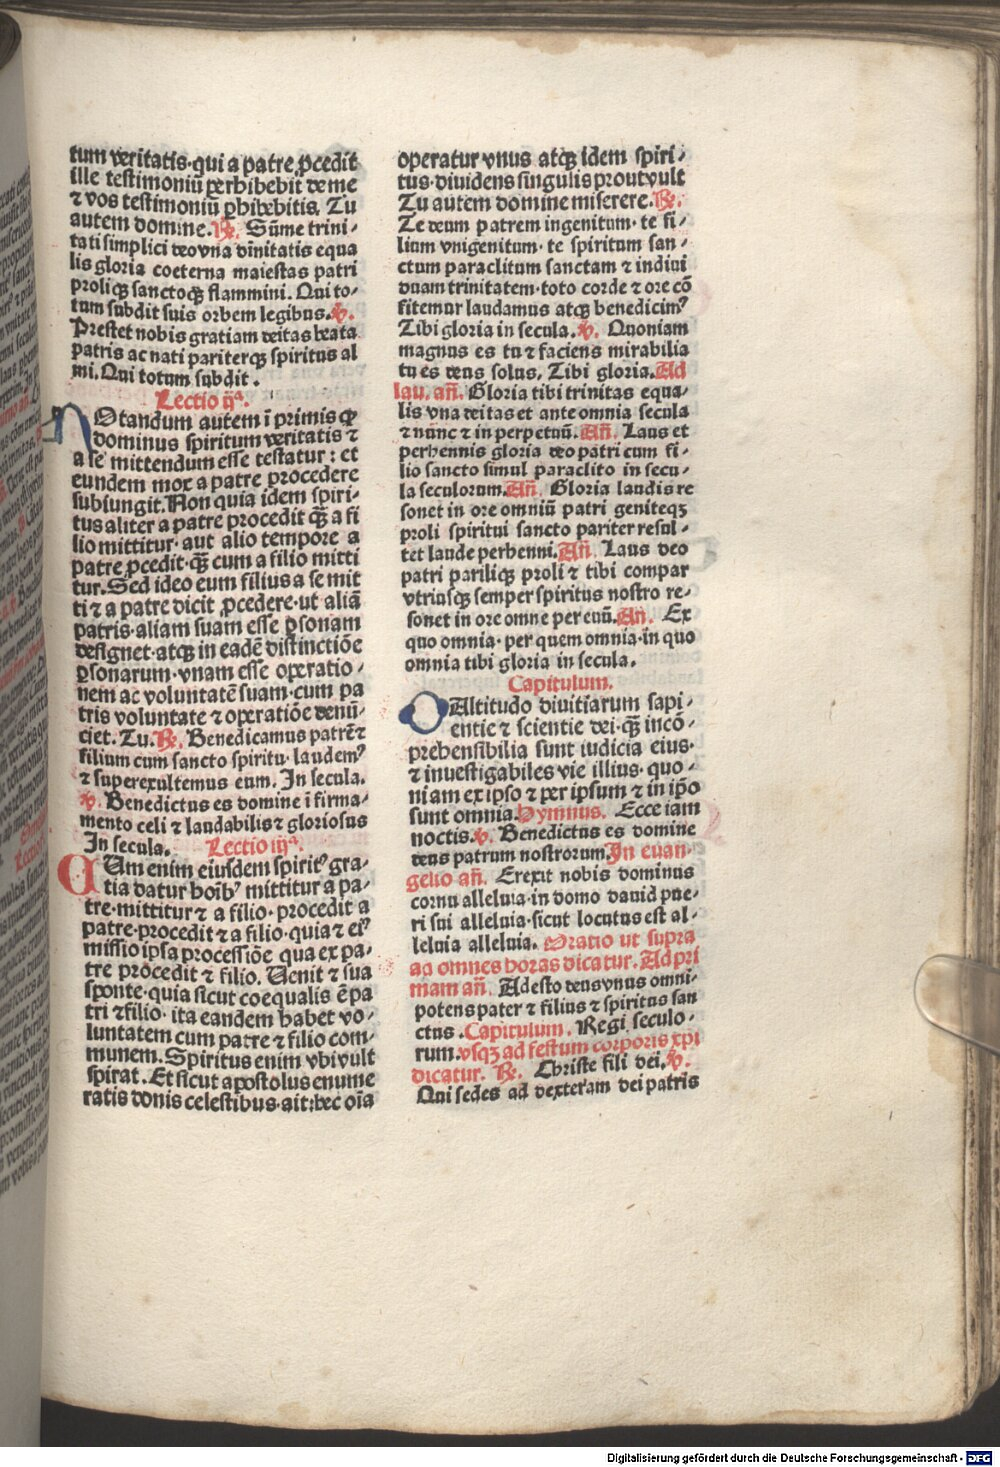 tum veritatis·qui a patre ꝓcedit
ille testimoniū perhibebit de me
⁊ vos testimoniū ꝑhibebitis. Tu
autem domine. ℟. Sūme trini⸗
tati simplici deo vna diuinitatis equa
lis gloria coeterna maiestas patri
proliqꝫ sanctoqꝫ flammini. Qui to⸗
tum subdit suis orbem legibus. ℣.
Prestet nobis gratiam deitas beata
patris ac nati pariterqꝫ spiritus al
mi. Qui totum subdit.
Lectio ij^a.
NOtandum autem ī primis ꝙ
dominus spiritum veritatis ⁊
a se mittendum esse testatur: et
eundem mox a patre procedere
subiungit. Non quia idem spiri⸗
tus aliter a patre procedit qꝫ̄ a fi
lio mittitur· aut alio tempore a
patre ꝓcedit· qꝫ̄ cum a filio mitti
tur. Sed ideo eum filius a se mit
ti ⁊ a patre dicit ꝓcedere·ut aliā
patris·aliam suam esse ꝑsonam
designet·atqꝫ in eadē distinctiōe
ꝑsonarum·vnam esse operatio⸗
nem ac voluntatē suam·cum pa
tris voluntate ⁊ operatiōe denū⸗
ciet. Tu. ℟. Benedicamus patrē ⁊
filium cum sancto spiritu·laudemꝰ
⁊ superexultemus eum. In secula.
℣. Benedictus es domine ī firma⸗
mento celi ⁊ laudabilis ⁊ gloriosus
In secula. Lectio iij^a.
CUm enim eiusdem spiritꝰ gra⸗
tia datur hoībꝰ mittitur a pa⸗
tre·mittitur ⁊ a filio·procedit a
patre·procedit ⁊ a filio·quia ⁊ eiꝰ
missio ipsa processiōe qua ex pa⸗
tre procedit ⁊ filio. Uenit ⁊ sua
sponte·quia sicut coequalis ē pa
tri ⁊ filio·ita eandem habet vo⸗
luntatem cum patre ⁊ filio com⸗
munem. Spiritus enim vbi vult
spirat. Et sicut apostolus enume
ratis donis celestibus·ait:hec oīa
operatur vnus atqꝫ idem spiri⸗
tus·diuidens singulis prout vult
Tu autem domine miserere. ℟.
Te deum patrem ingenitum·te fi⸗
lium vnigenitum·te spiritum san⸗
ctum paraclitum sanctam ⁊ indiui
duam trinitatem·toto corde ⁊ ore cō
fitemur laudamus atqꝫ benedicimꝰ
Tibi gloria in secula. ℣. Quoniam
magnus es tu ⁊ faciens mirabilia
tu es deus solus. Tibi gloria. Ad
lau. añ. Gloria tibi trinitas equa⸗
lis vna deitas et ante omnia secula
⁊ nunc ⁊ in perpetuū. Añ. Laus et
perhennis gloria deo patri cum fi⸗
lio sancto simul paraclito in secu⸗
la seculorum. Añ. Gloria laudis re
sonet in ore omniū patri geniteqꝫ
proli spiritui sancto pariter resul⸗
tet laude perhenni. Añ. Laus deo
patri pariliqꝫ proli ⁊ tibi compar
vtriusqꝫ semper spiritus nostro re⸗
sonet in ore omne per euū. An. Ex
quo omnia·per quem omnia·in quo
omnia tibi gloria in secula.
Capitulum.
OAltitudo diuitiarum sapi⸗
entie ⁊ scientie dei·qꝫ̄ incō⸗
prehensibilia sunt iudicia eius·
⁊ inuestigabiles vie illius·quo⸗
niam ex ipso ⁊ per ipsum ⁊ in ip̄o
sunt omnia. Hymnus. Ecce iam
noctis. ℣. Benedictus es domine
deus patrum nostrorum. In euan⸗
gelio añ. Erexit nobis dominus
cornu alleluia·in domo dauid pue⸗
ri sui alleluia·sicut locutus est al⸗
leluia alleluia. Oratio ut supra
ad omnes horas dicatur. Ad pri
mam añ. Adesto deus vnus omni⸗
potens pater ⁊ filius ⁊ spiritus san
ctus. Capitulum. Regi seculo⸗
rum. vsqꝫ ad festum corporis xp̄i
dicatur. ℟. Christe fili dei. ℣.
Qui sedes ad dexteram dei patris
Digitalisierung gefördert durch die Deutsche Forschungsgemeinschaft - DFG